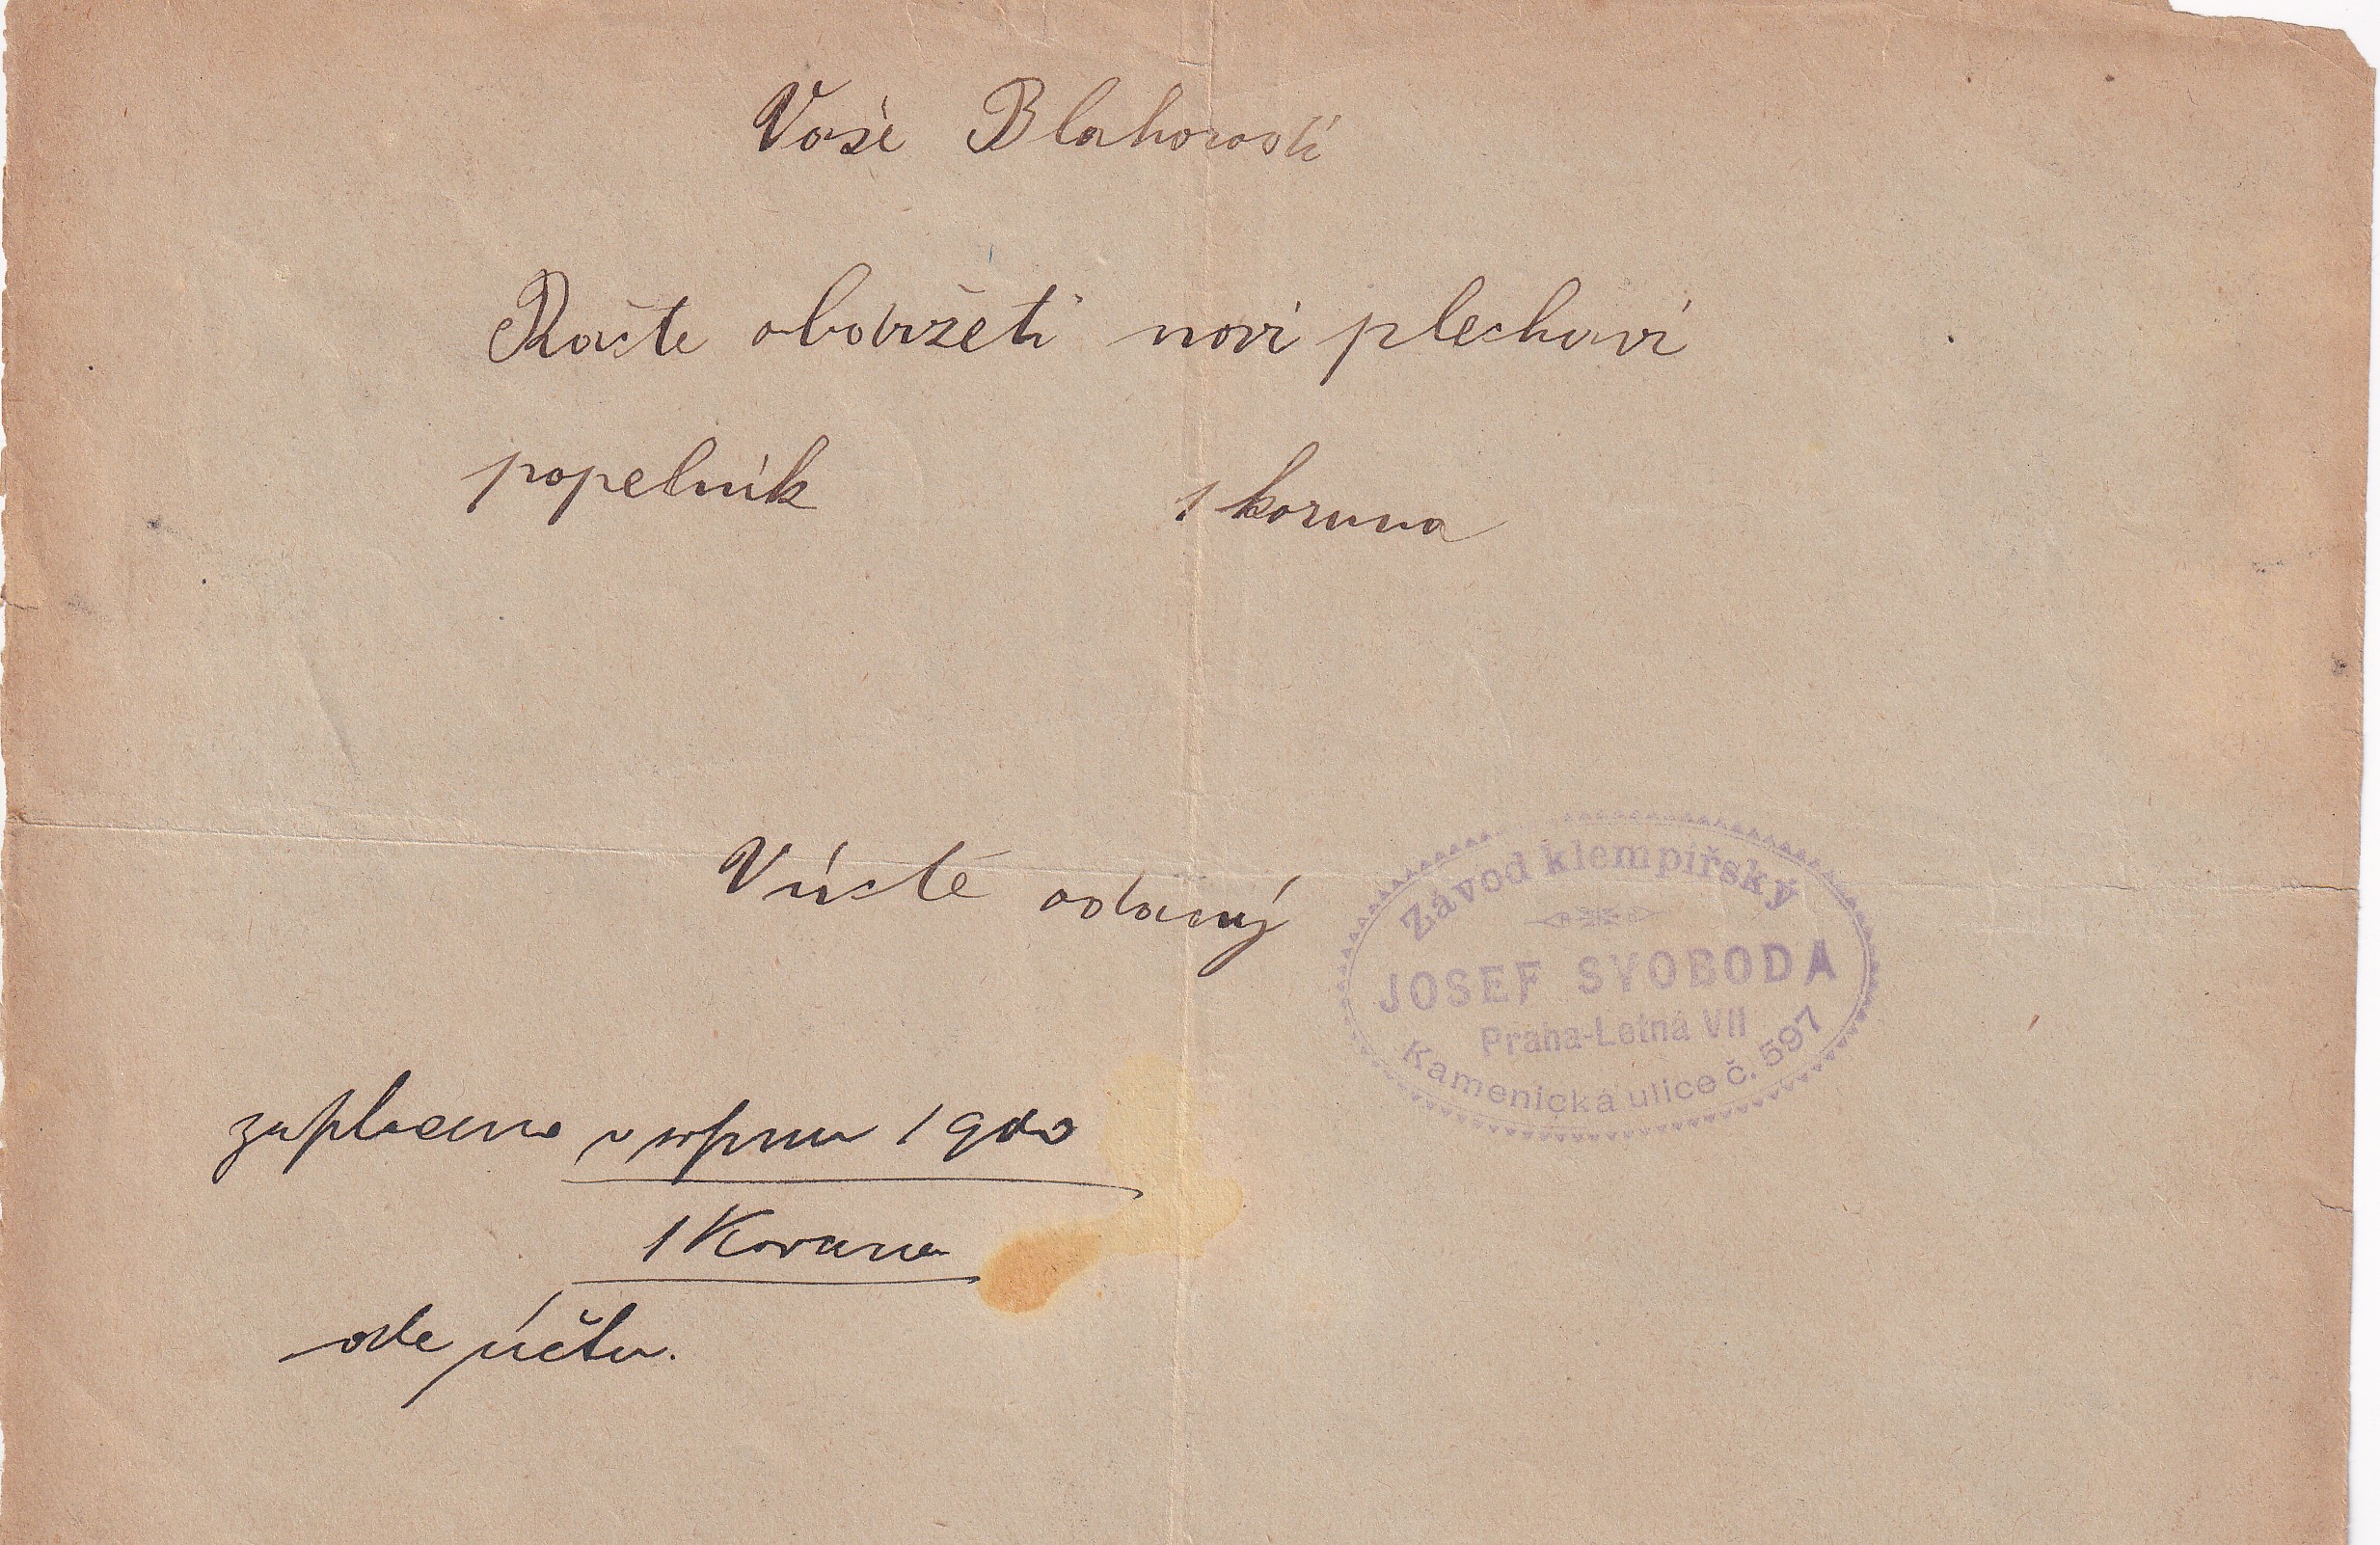 Vaše Blahorodí
Račte obdržeti noví plechoví
popelník 1 koruna
V úctě odaný
Závod klempířský
JOSEF SVOBODA
Praha-Letná VII
Kamenická ulice č. 597
zaplaceno v srpnu
1 Koruna
dle účtu.